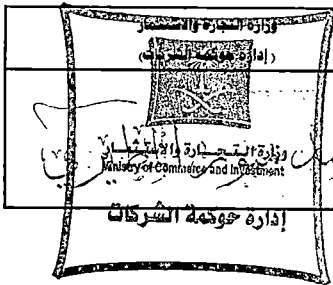 وزارة التجارة والاستثمار
(إدارة حوكمة الشركات)
وزارة التجارة والاستثمار
Ministry of Commerce and Investment
إدارة حوكمة الشركات